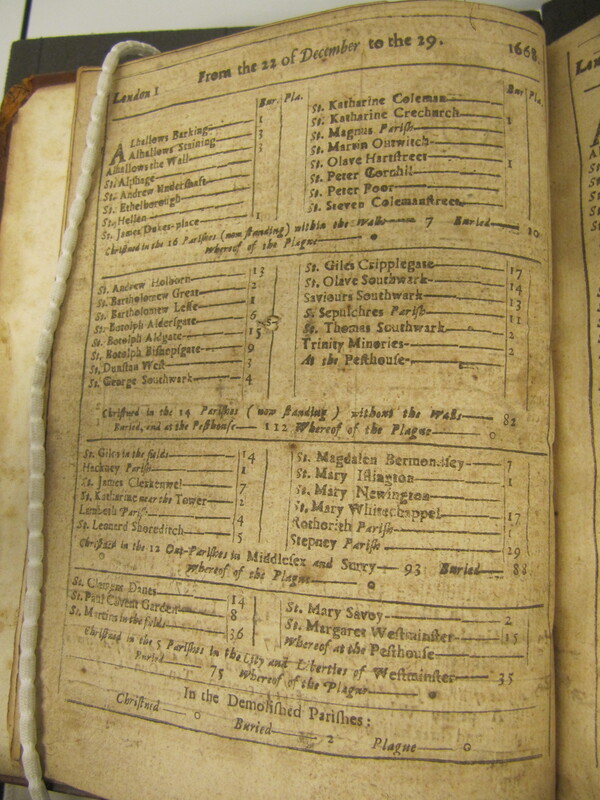 London 1 From the 22 of December to the 29. 1668.
Bur. Pla.
Alhallows Barking— 1
Alhallows Staining— 3
Alhallows the Wall— 3
St. Alphage
St. Andrew Undershaft
St. Ethelborough
St. Hellen
St. James Dukes-place— 1
Bur. Pla.
St. Katharine Coleman
St. Katharine Creechurch— 1
St. Magnus Parish
St. Martin Outwitch
St. Olave Hartstreet— 1
St. Peter Cornhil
St. Peter Poor
St. Steven Colemanstreet
Christned in the 16 Parishes (now standing) within the Walls— 7 Buried— 10
Whereof of the Plague— 0
St. Andrew Holborn— 13
St. Bartholomew Great— 2
St. Bartholomew Lesse— 1
St. Botolph Aldersgate— 6
St. Botolph Aldgate— 15
St. Botolph Bishopsgate— 9
St. Dunstan West— 3
St. George Southwark— 4
St. Giles Cripplegate— 17
St. Olave Southwark— 14
Saviours Southwark— 13
S. Sepulchres Parish— 11
St. Thomas Southwark— 2
Trinity Minories— 2
At the Pesthouse—
Christned in the 14 Parishes (now standing) without the Walls— 82
Buried, and at the Pesthouse— 112 Whereof of the Plague— 0
St. Giles in the fields— 14
Hackney Parish— 1
St. James Clerkenwel— 7
St. Katharine near the Tower— 2
Lambeth Parish— 4
St. Leonard Shoreditch— 5
St. Magdalen Bermondsey— 7
St. Mary Islington— 1
St. Mary Newington
St. Mary Whitechappel— 17
Rothorith Parish— 1
Stepney Parish— 29
Christned in the 12 Out-Parishes in Middlesex and Surry— 93 Buried— 88
Whereof of the Plague— 0
St. Clement Danes— 14
St. Paul Covent Garden— 8
St. Martins in the fields— 36
St. Mary Savoy— 2
St. Margaret Westminster— 15
Whereof at the Pesthouse—
Christned in the 5 Parishes in the City and Liberties of Westminster— 35
Buried— 75 Whereof of the Plague— 0
In the Demolished Parishes:
Christned— 0 Buried— 2 Plague— 0